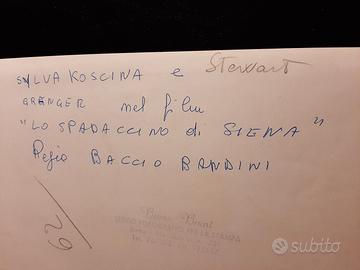 SYLVA KOSCINA e Stewart
GRANGER nel film
"LO SPADACCINO di SIENA"
Regia BACCIO BANDINI
62
subito